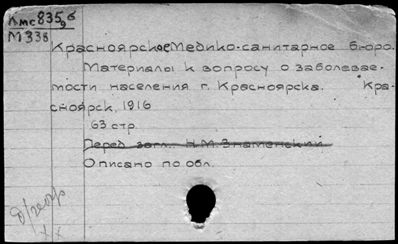 Кмс 835/96
М 338
Красноярское Медико-санитарное бюро.
Материалы к вопросу о заболевае-
мости населения г. Красноярска. Кра-
сноярск, 1916
63 стр.
Перед загл. Н.М. Знаменский
Описано по обл.